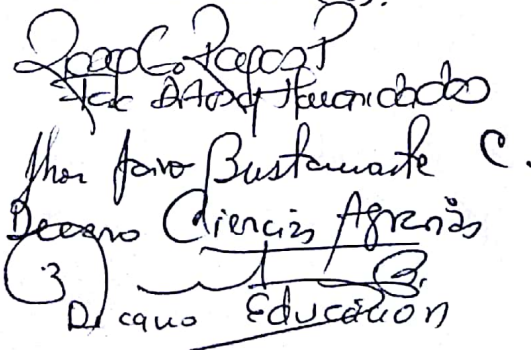 Fac Artes y Humanidades
Jhon Jairo Bustamante C.
Decano Ciencias Agrarias
Decano Educación